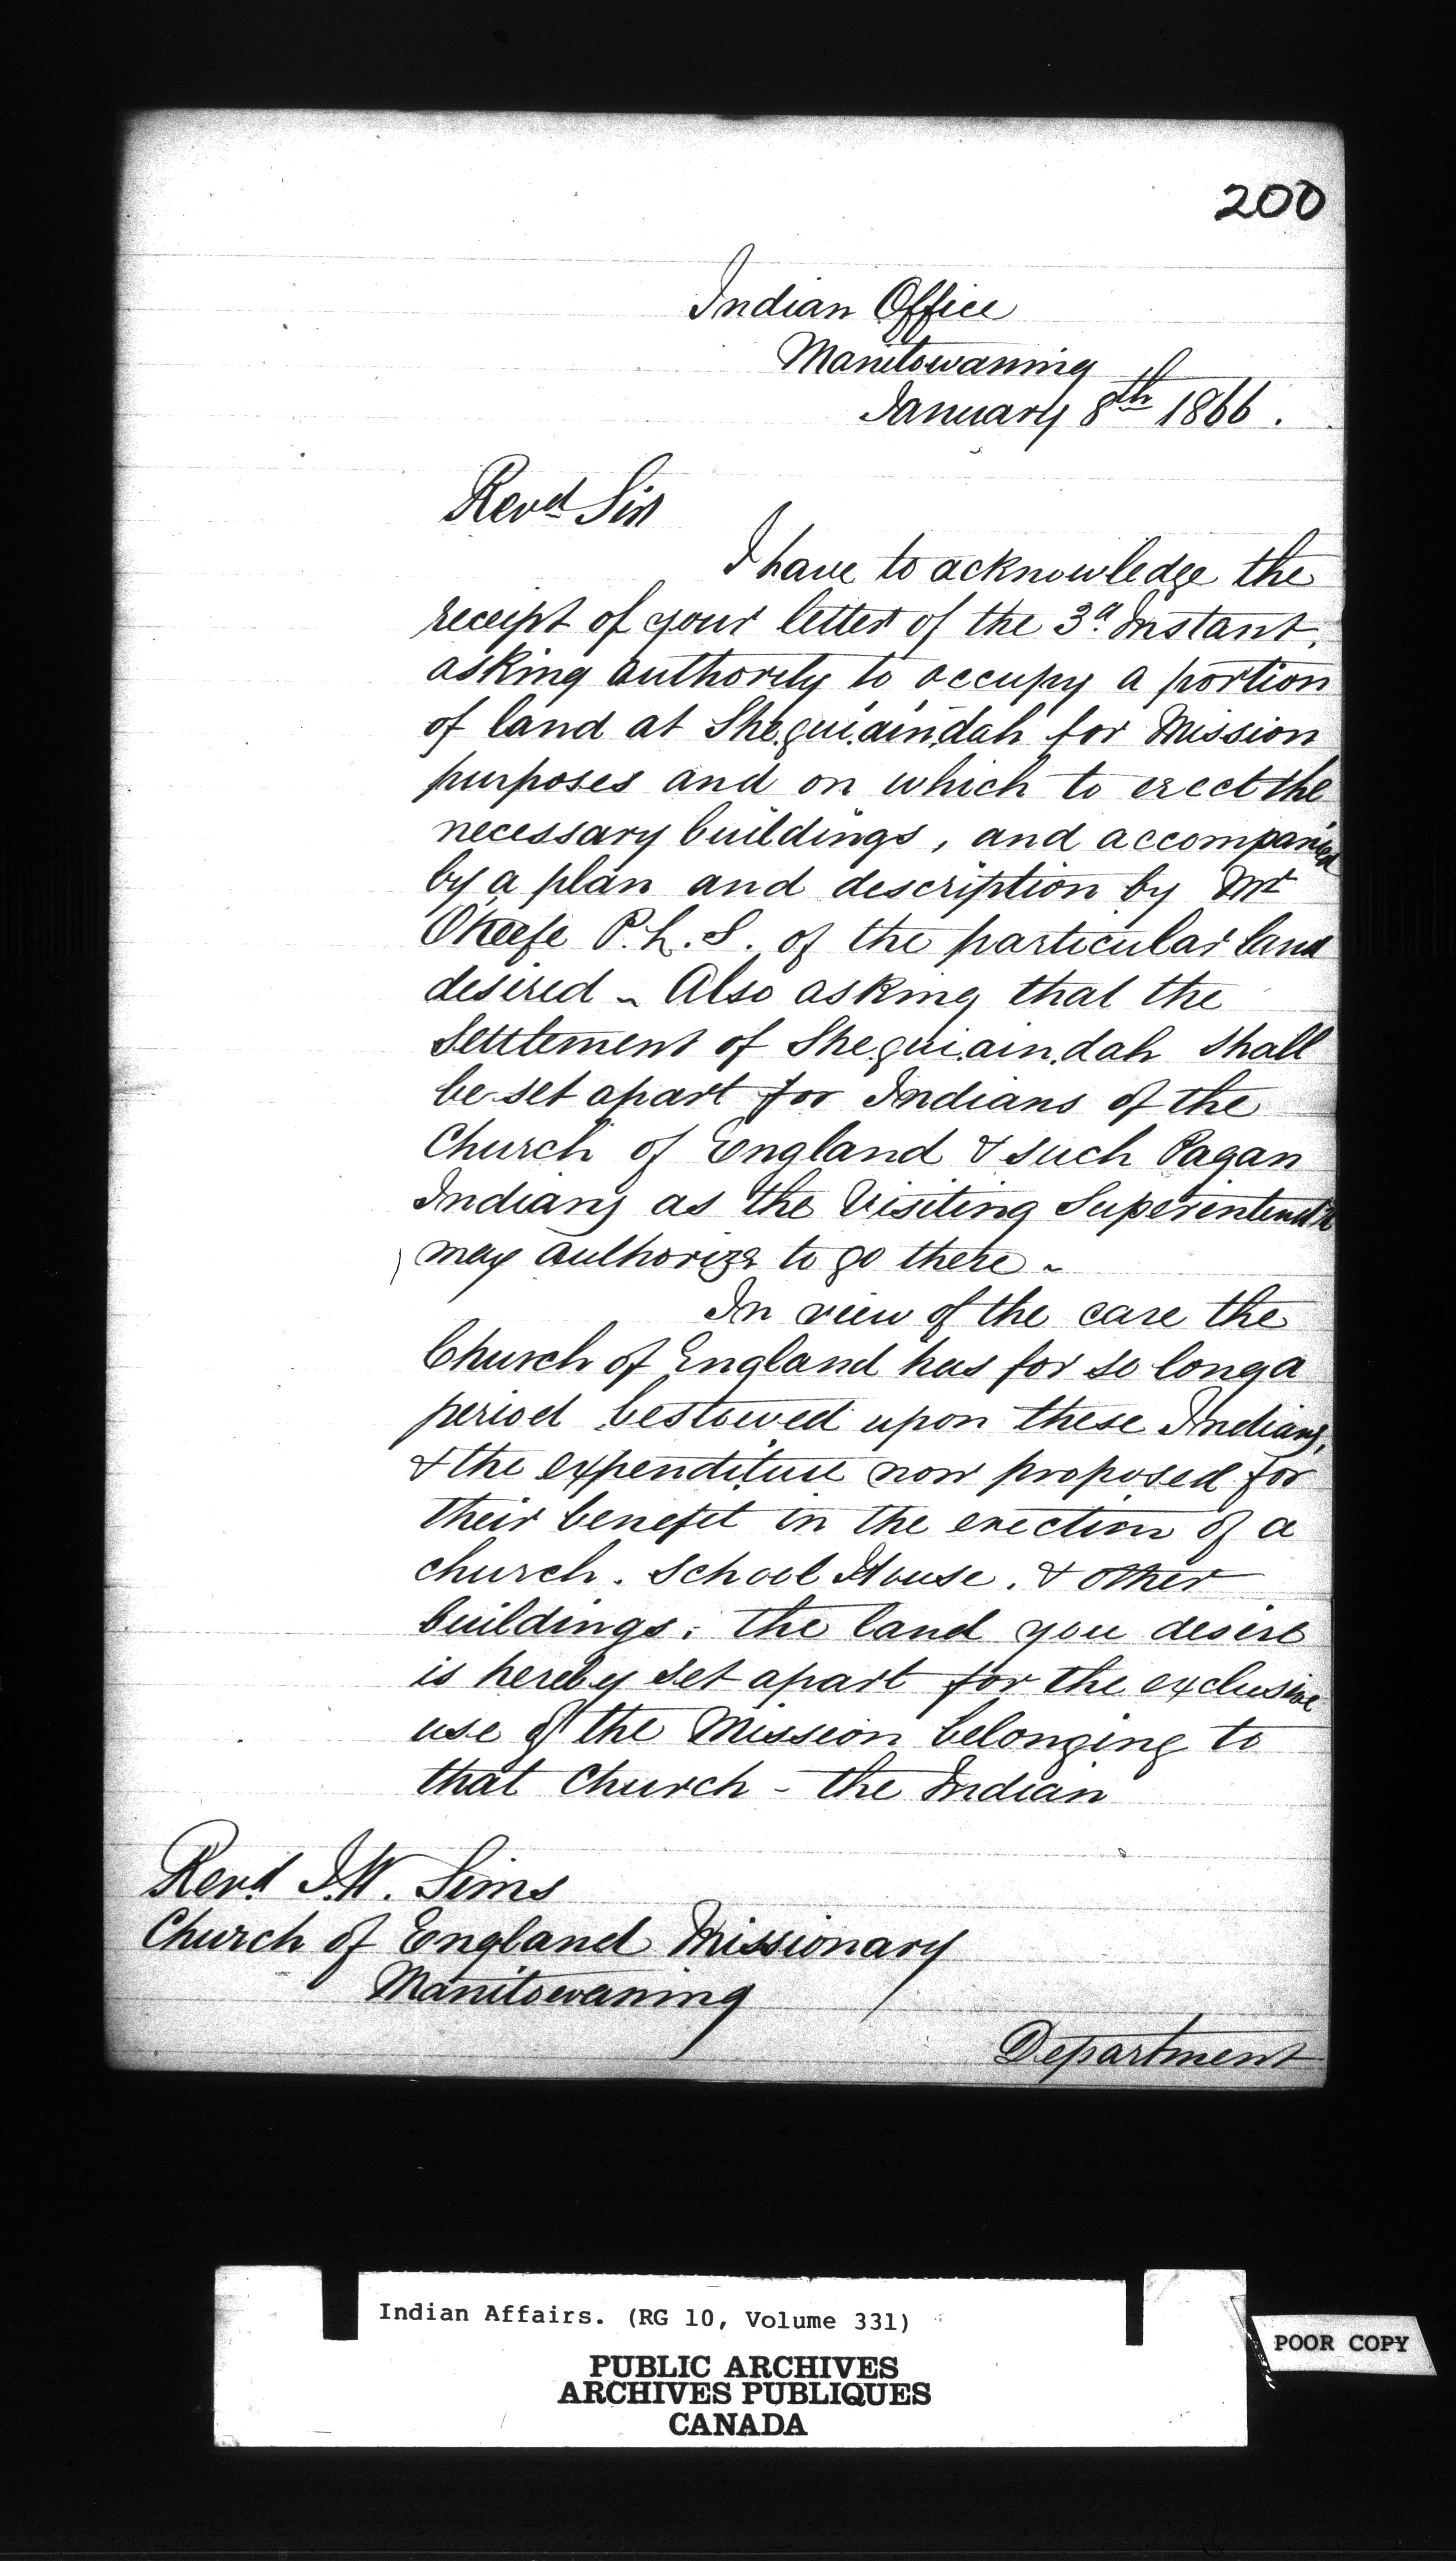 200
Indian Office
Manitowaning
January 8th 1866.
Revd Sir
I have to acknowledge the
receipt of your letter of the 3d. Instant,
asking authority to occupy a portion
of land at She.gui.ain.dah for Mission
purposes and on which to erect the
necessary buildings, and accompanied
by a plan and description by Mr
O'Keefe P.L.S. of the particular land
desired - Also asking that the
Settlement of She.gui.ain.dah shall
be set apart for Indians of the
Church of England & such Pagan
Indians as the Visiting Superintendt
may authorize to go there -
In view of the care the
Church of England has for so long a
period bestowed upon these Indians,
& the expenditure now proposed for
their benefit in the erection of a
church. School House. & other
buildings. the land you desire
is hereby set apart for the exclusive
use of the Mission belonging to
that Church - the Indian
Revd. J.W. Sims
Church of England Missionary
Manitowaning
Department
Indian Affairs. (RG 10, Volume 331)
POOR COPY
PUBLIC ARCHIVES
ARCHIVES PUBLIQUES
CANADA